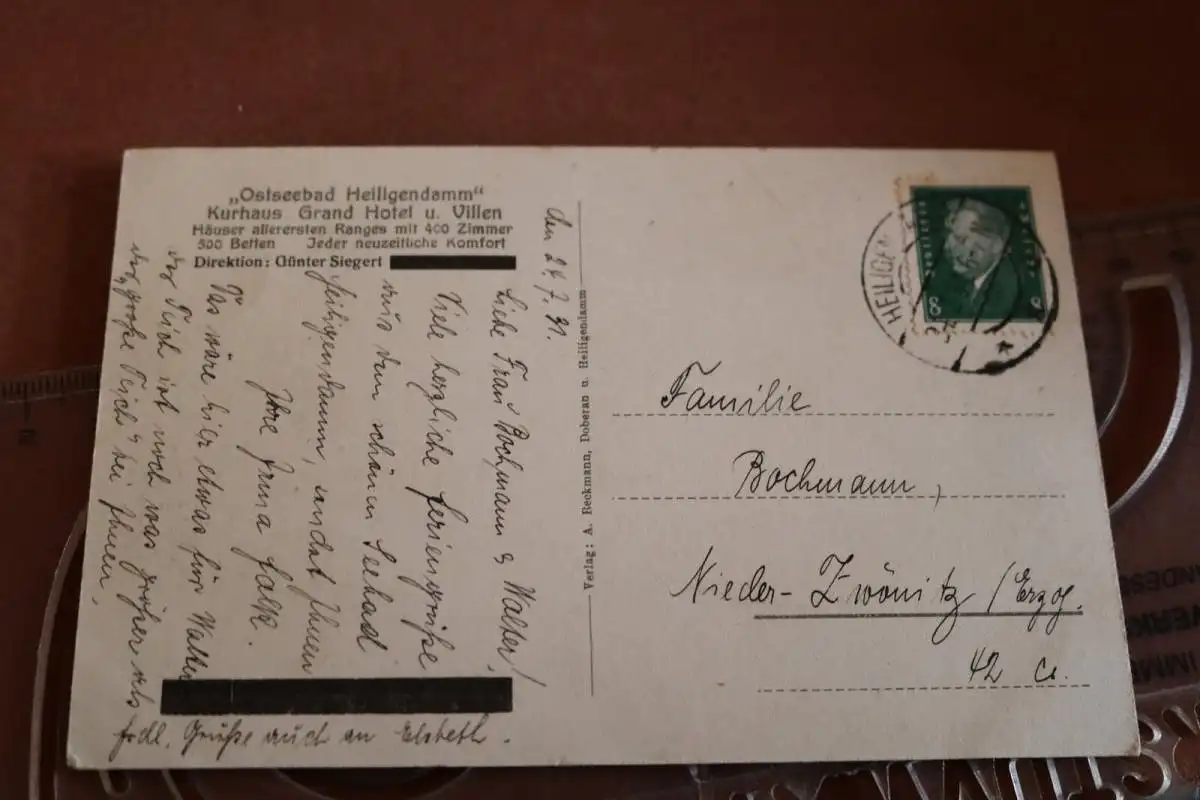 „Ostseebad Heiligendamm“
Kurhaus Grand Hotel u. Villen
Häuser allerersten Ranges mit 400 Zimmer
500 Betten Jeder neuzeitliche Komfort
Direktion: Günter Siegert
den 24.7.31.
Liebe Frau Bochmann & Walter!
Viele herzliche Feriengrüße
aus dem schönen Seebad
Heiligendamm, sendet Ihnen
Ihre Irma Falk.
Das wäre hier etwas für Walter
der Teich ist noch was größer als
der „große Teich“ bei Ihnen.
frdl. Grüße auch an Elsbeth.
Verlag: A. Reckmann, Doberan u. Heiligendamm
HEILIGEN
8 8
Familie
Bochmann,
Nieder-Zwönitz /Erzg.
42 c.
2